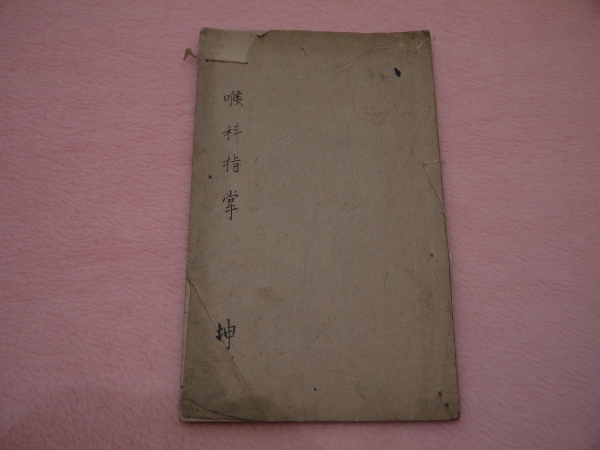 喉科指掌
坤